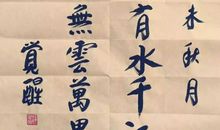 未秋月
有水千江
無雲萬里
覺醒